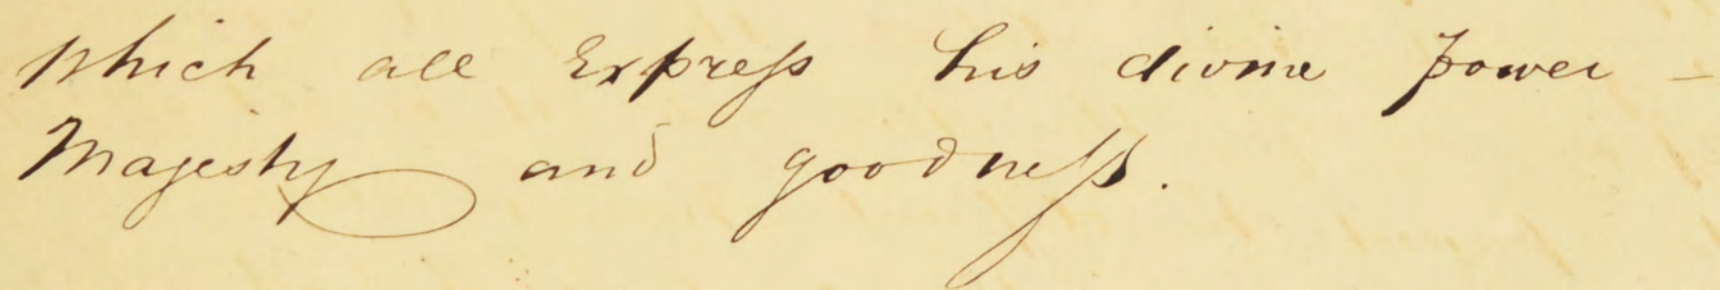 which all Express his divine power –
Majesty and goodness.